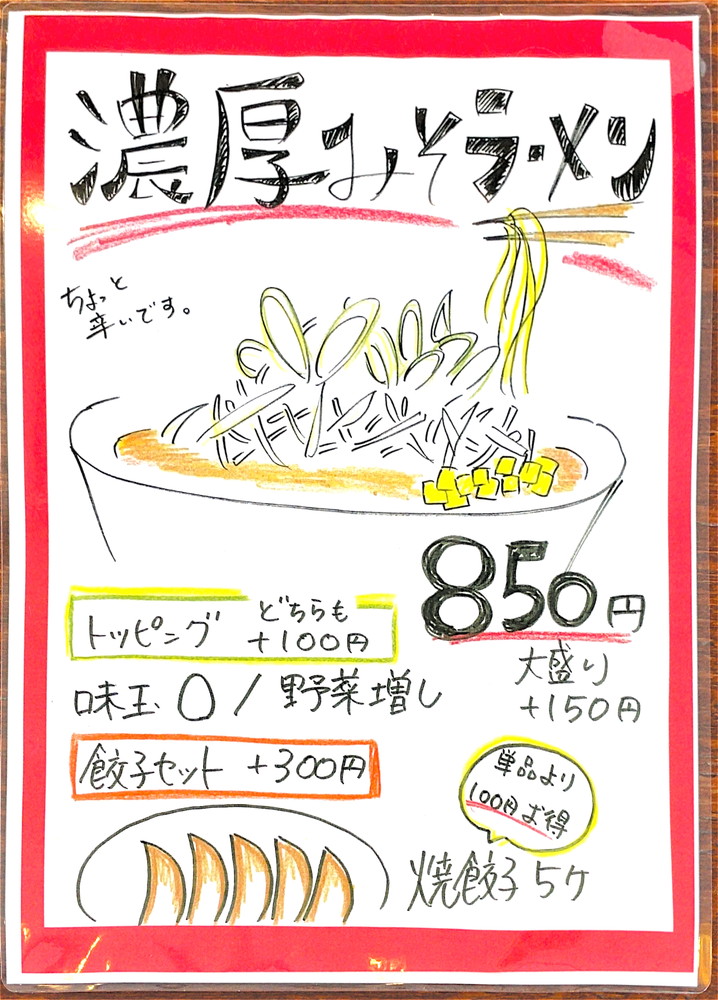 濃厚みそラーメン
ちょっと
辛いです。
850円
大盛り
+150円
トッピング どちらも
+100円
味玉 / 野菜増し
餃子セット +300円
単品より
100円お得
焼餃子 5ケ